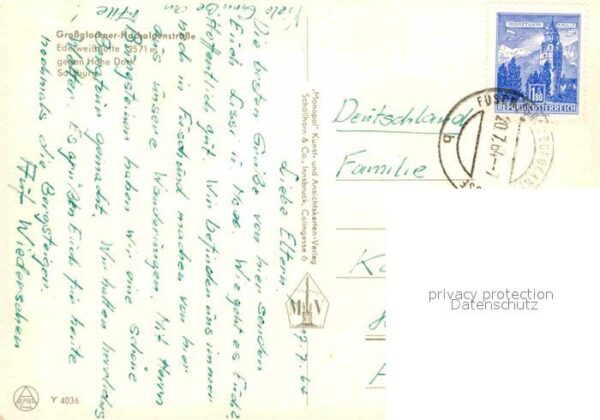 Großglockner-Hochalpenstraße
Edelweißhütte (2571 m)
gegen Hohe Dock
Salzburg
Y 4036
"Monopol" Kunst- und Ansichtskarten-Verlag
Schöllhorn & Co., Innsbruck, Colingasse 6
MÜNZTURM HALL I. T.
1.80
REPUBLIK ÖSTERREICH
FUSCH
20.7.64-7
b
Deutschland
Familie
K
7.64
Liebe Eltern!
Die besten Grüße von hier senden
Euch Lisser u. Wie geht es Euch?
Hoffentlich gut. Wir befinden uns immer
noch in Fusch und machen von hier
aus unsere Wanderungen. Mit Herrn
Bergsteigern haben wir eine schöne
Bergtour gemacht. Wir hatten herrliches
Wetter. Es grüßen Euch für heute
nochmals die Bergsteiger.
Auf Wiedersehen
Viele
Alle
privacy protection
Datenschutz